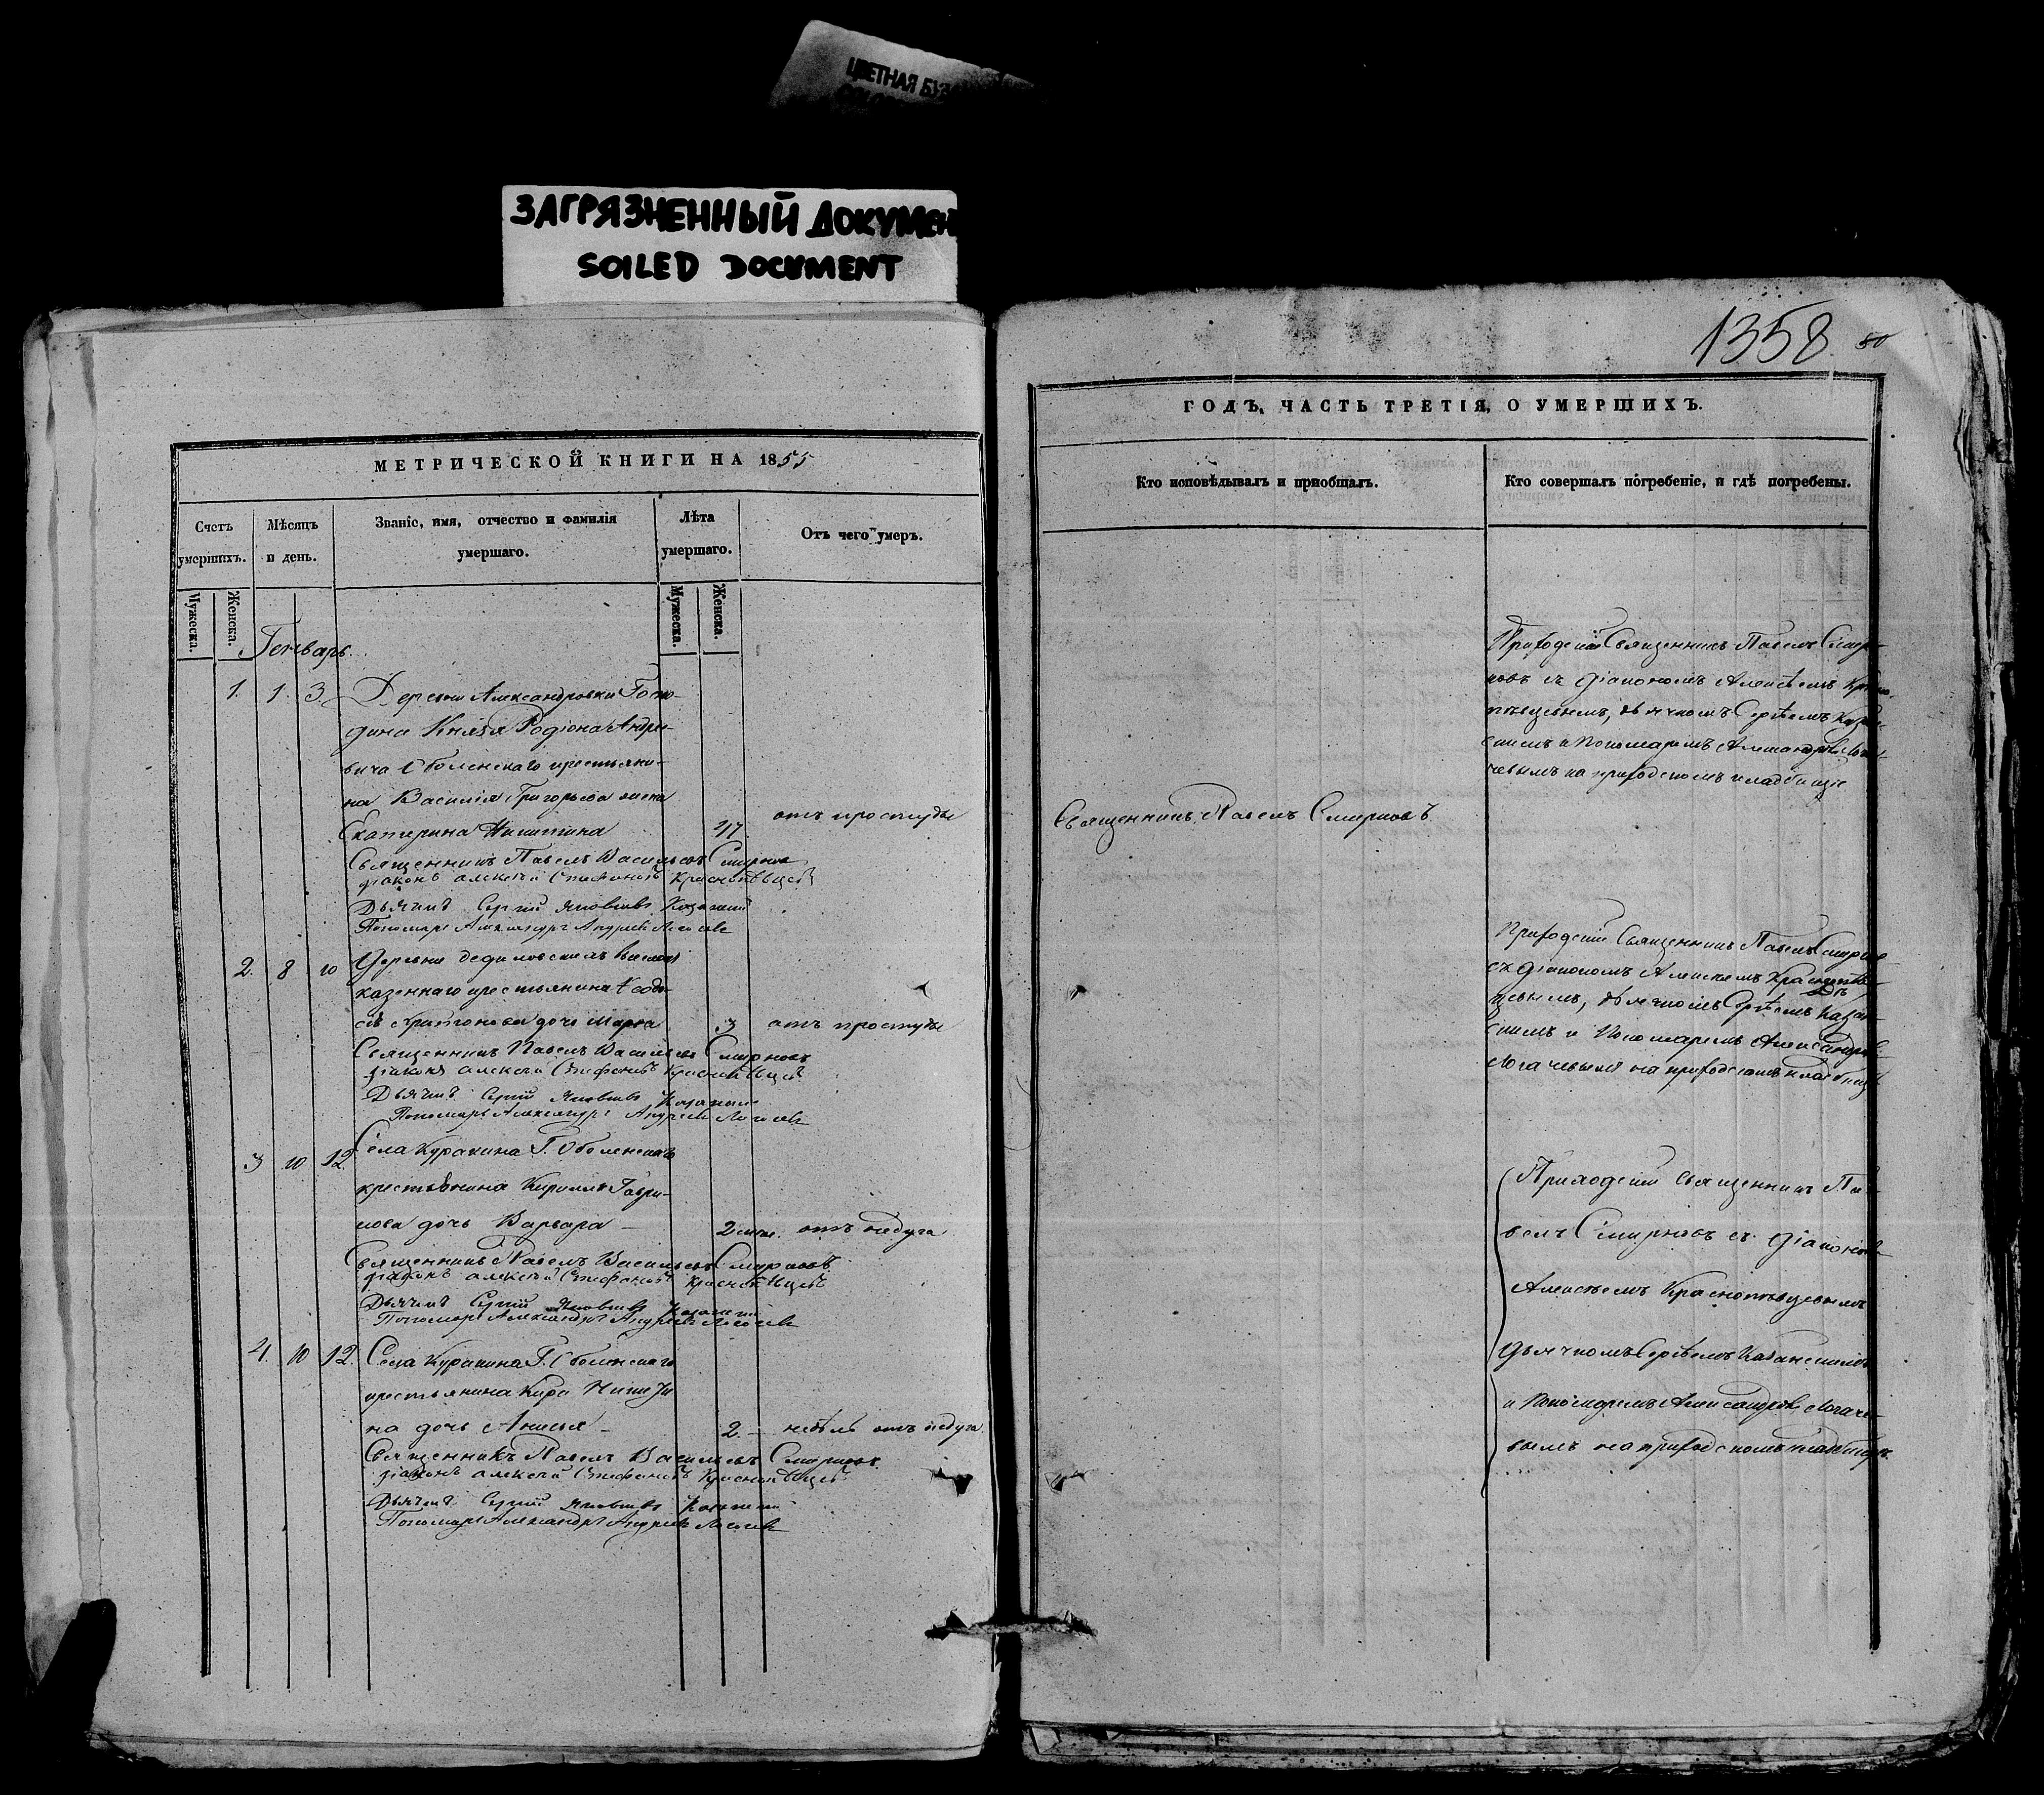 ЦВЕТНАЯ
ЗАГРЯЗНЕННЫЙ ДОКУМЕН
SOILED DOCUMENT
МЕТРИЧЕСКОЙ КНИГИ НА 1855
Счетъ умершихъ.
Мѣсяцъ и день.
Званіе, имя, отчество и фамилія умершаго.
Лѣта умершаго.
Отъ чего умеръ.
Мужеска.
Женска.
Мужеска.
Женска.
Генварь.
1. 1. 3. Деревни Александровки Госпо-
дина Князя Родіона Андре-
вича Оболенскаго крестьяни-
на Василія Григорьева жена
Екатерина Никитина 47. отъ простуды
Священникъ Павелъ Васильевъ Смирновъ
діаконъ Алексѣй Стефановъ Краснопѣвцевъ
Дьячекъ Сергій Яковлевъ Казанскій
Пономарь Александръ Андреевъ Логачевъ
2. 8 10 Деревни
казеннаго крестьянина
дочь Марѳа 3 отъ простуды
Священникъ Павелъ Васильевъ Смирновъ
діаконъ Алексѣй Стефановъ Краснопѣвцевъ
Дьячекъ Сергій Яковлевъ Казанскій
Пономарь Александръ Андреевъ Логачевъ
3 10 12. Села Куракина Г. Оболенскаго
крестьянина Кирилла Гаври-
лова дочь Варвара – отъ недуга
Священникъ Павелъ Васильевъ Смирновъ
діаконъ Алексѣй Стефановъ Краснопѣвцевъ
Дьячекъ Сергій Яковлевъ Казанскій
Пономарь Александръ Андреевъ Логачевъ
4. 10 12. Села Куракина Г. Оболенскаго
крестьянина
на дочь Анисья – 2. – недѣль отъ недуга
Священникъ Павелъ Васильевъ Смирновъ
діаконъ Алексѣй Стефановъ Краснопѣвцевъ
Дьячекъ Сергій Яковлевъ Казанскій
Пономарь Александръ Андреевъ Логачевъ
1358 80
ГОДЪ, ЧАСТЬ ТРЕТІЯ, О УМЕРШИХЪ.
Кто исповѣдывалъ и пріобщалъ.
Кто совершалъ погребеніе, и гдѣ погребены.
Священникъ Павелъ Смирновъ
Приходскій Священникъ Павелъ Смир-
новъ съ Діакономъ Алексѣемъ Красно-
пѣвцевымъ, дьячкомъ Сергѣемъ Казан-
скимъ и Пономаремъ Александромъ Лога-
чевымъ на приходскомъ кладбищѣ
Приходскій Священникъ Павелъ Смирновъ
съ Діакономъ Алексѣемъ Краснопѣв-
цевымъ, дьячкомъ Сергѣемъ Казан-
скимъ и Пономаремъ Александромъ
Логачевымъ на приходскомъ кладбищѣ
Приходскій Священникъ Па-
велъ Смирновъ съ Діакономъ
Алексѣемъ Краснопѣвцевымъ
Дьячкомъ Сергѣемъ Казанскимъ
и Пономаремъ Александромъ Логаче-
вымъ на приходскомъ кладбищѣ.